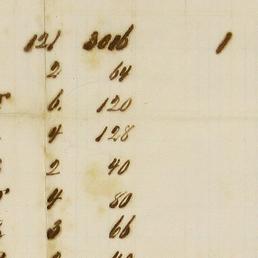 121 3016 1
2 64
6. 120
4 128
2 40
4 80
3 66